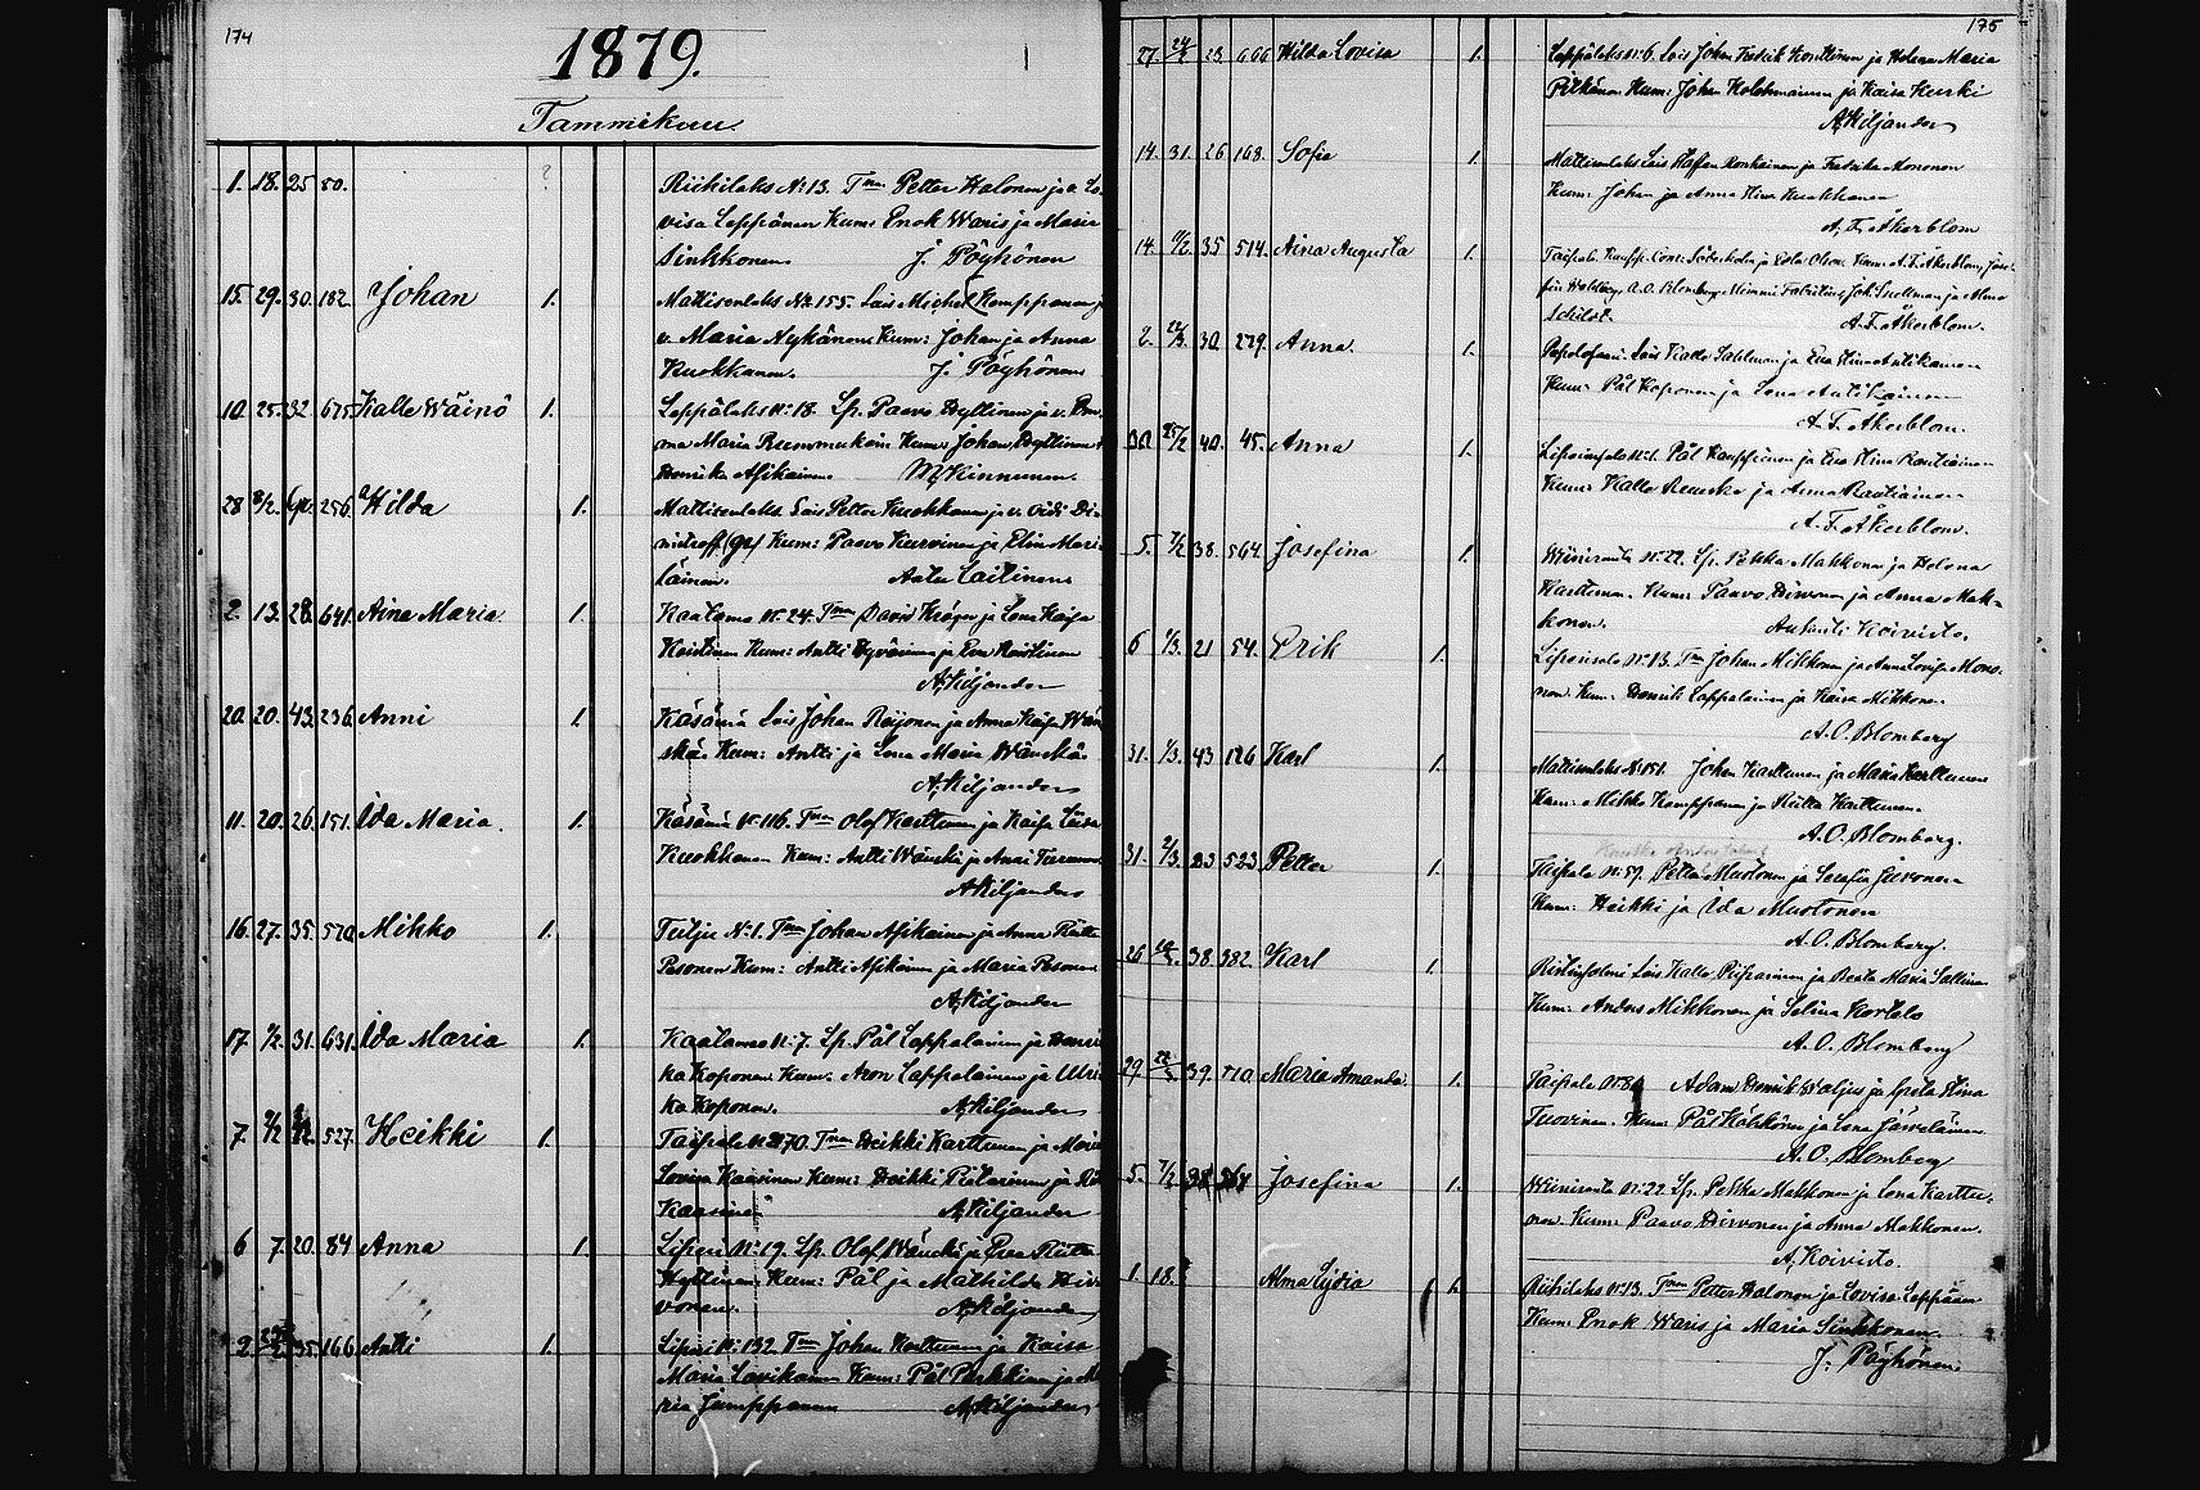 174
1879.
Tammikuu.
1. 18. 25 50. ? Riihilaks No 13. Tman Petter Halonen ja v. Lo
visa Leppänen Kum: Enok Waris ja Maria
Sinkkonen. J. Pöyhönen
15. 29. 30. 182. Johan 1. Mattisenlaks No 155. Lois Michel Kemppanen j
v. Maria Nykänen Kum: Johan ja Anna
Kuokkanen. J. Pöyhönen
10. 25. 32. 675. Kalle Wäinö 1. Leppälaks No 18. Lp. Paavo Hyttinen ja v. Em
ma Maria Kum: Johan Hyttinen
Henrika Asikainen M. Kinnunen.
28 8/2. 256. Hilda 1. Mattisenlaks. Lois Petter Kuokkanen ja v. Di-
mitreff (gr) Kum: Paavo Kurvinen ja Elin Mari-
läinen. Aatu Laitinen
2. 13. 28. 641. Aina Maria. 1. Kaatamo No 24. Tman David Kröger ja Lena Kaisa
Koistinen Kum: Antti Hyvärinen ja Eva Koistinen
A. Kiljander
20. 20. 43. 236. Anni 1. Käsämä Lois Johan Reijonen ja Anna Kaisa Wän
skä. Kum: Antti ja Lena Maria Wänskä.
A. Kiljander
11. 20. 26. 151. Ida Maria. 1. Käsämä No 116. Tman Olof Karttunen ja Kaisa Liisa
Kuokkanen Kum: Antti Wänskä ja Anni Turunen
A. Kiljander
16. 27. 35. 570. Mikko 1. Tutju No 1. Tman Johan Asikainen ja Anna Riitta
Pesonen Kum: Antti Asikainen ja Maria Pesonen
A. Kiljander
17. 1/2. 31. 631. Ida Maria 1. Kaatamo No 7. Lp. Pål Lappalainen ja Henri
ka Koponen. Kum. Aron Lappalainen ja Ulri
ka Koponen. A. Kiljander
7. 2/2 527. Heikki 1. Taipale No 70. Tman Heikki Karttunen ja Maria
Lovisa Kaasinen Kum: Heikki Pitarinen ja
Kaasinen A. Kiljander
6 7. 20. 84 Anna 1. Liperi No 19. Lp. Olof Wänskä ja Eva Riitta
Hyttinen. Kum: Pål ja Mathilda Hir
vonen. A. Kiljander
2. 35. 166. Antti 1. Liperi No 132 Tman Johan Karttunen ja Kaisa
Maria Lavikainen Kum: Pål Parkkinen ja Ma
ria Jumppanen A. Kiljander
175
27. 24/2 23. 666 Hilda Lovisa 1. Leppälaks No 6. Lois Johan Fredrik Konttinen ja Helena Maria
Pitkänen Kum: Johan Kolehmainen ja Kaisa Kurki
A. Kiljander
14. 31. 26 168. Sofia 1. Mattisenlaks Lois Staffan Ronkainen ja Fredrika Mononen
Kum: Johan ja Anna Stina Kuokkanen
A. F. Åkerblom
14. 11/2. 35 514. Aina Augusta 1. Taipale. Kaupp. Const: Söderholm ja Olson. Kum: A. F. Åkerblom, Jose-
fin Wallberg, A. O. Blomberg, Mimmi Fabritius, Joh. Snellman ja Alma
Schildt. A. F. Åkerblom.
2. 22/3. 30. 279. Anna. 1. Papelosaari. Lois Kalle Sahlman ja Eva Stina Antikainen
Kum: Pål Koponen ja Lena Antikainen
A. F. Åkerblom.
30. 25/2 40. 45. Anna 1. Liperinsalo No 1. Pål Kauppinen ja Eva Stina Rautiainen
Kum: Kalle ja Anna Rautiainen
A. F. Åkerblom.
5. 7/2 38. 564. Josefina 1. Wiiniranta No 22. Lp. Pekka Makkonen ja Helena
Karttunen. Kum: Paavo Hirvonen ja Anna Mak-
konen. Aukusti Koivisto.
6 1/3. 21 54. Erik 1. Liperinsalo No 13. Tm Johan Mikkonen ja Anna Lovisa Mono-
nen. Kum: Henrik Lappalainen ja Kaisa Mikkonen.
A. O. Blomberg
31. 1/3. 43 126 Karl 1. Mattisenlaks No 151. Johan Karttunen ja Maria Karttunen
Kum: Mikko Kemppanen ja Riitta Karttunen.
A. O. Blomberg.
31. 2/3. 23 523 Petter 1. Taipale No 59. Petter Mustonen ja Serafia Hirvonen
Kum: Heikki ja Ida Mustonen
A. O. Blomberg.
26 38 382 Karl 1. Lois Kalle Piiparinen ja Beata Maria Sallinen
Kum: Anders Mikkonen ja Selina Kortelo
A. O. Blomberg
29 39. 510 Maria Amanda. 1. Taipale Adam Henrik Waljus ja Greta Stina
Tuovinen. Kum: Pål Kähkönen ja Lena Järveläinen.
A. O. Blomberg
5. 7/2. 38 564 Josefina 1. Wiiniranta No 22 Lp. Pekka Makkonen ja Lena Karttu-
nen. Kum: Paavo Hirvonen ja Anna Makkonen.
A. Koivisto.
1. 18. Alma Lydia 1. Riihilaks No 13. Tman Petter Halonen ja Lovisa Leppänen
Kum: Enok Waris ja Maria Sinkkonen.
J. Pöyhönen.